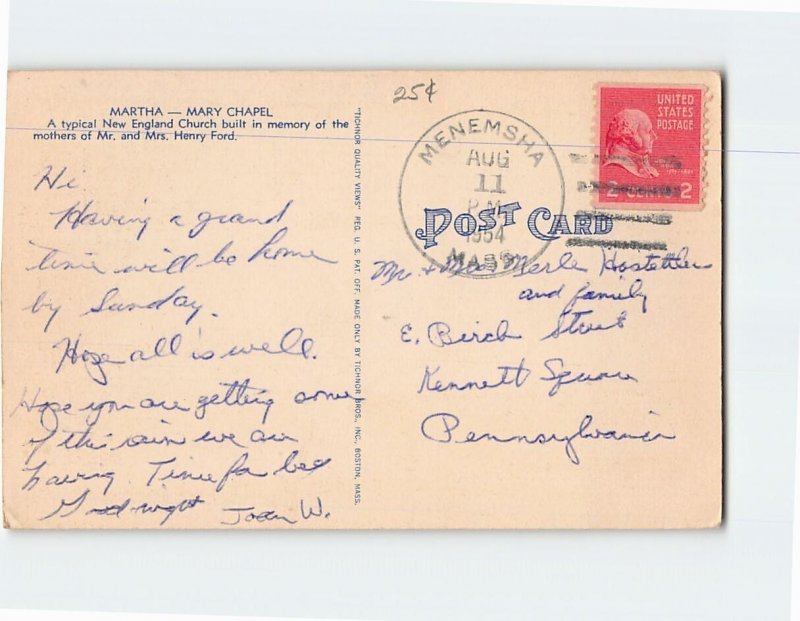 25¢
MARTHA — MARY CHAPEL
A typical New England Church built in memory of the
mothers of Mr. and Mrs. Henry Ford.
Hi
Having a grand
time will be home
by Sunday.
Hope all is well.
Hope you are getting some
of this rain we are
having. Time for bed
Good-night Joan W.
"TICHNOR QUALITY VIEWS" REG. U. S. PAT. OFF. MADE ONLY BY TICHNOR BROS., INC., BOSTON, MASS.
MENEMSHA
AUG
11
P.M.
1954
MASS.
UNITED
STATES
POSTAGE
2 CENTS 2
POST CARD
Mr + Mrs Merle Hostetler
and family
E. Birch Street
Kennett Square
Pennsylvania